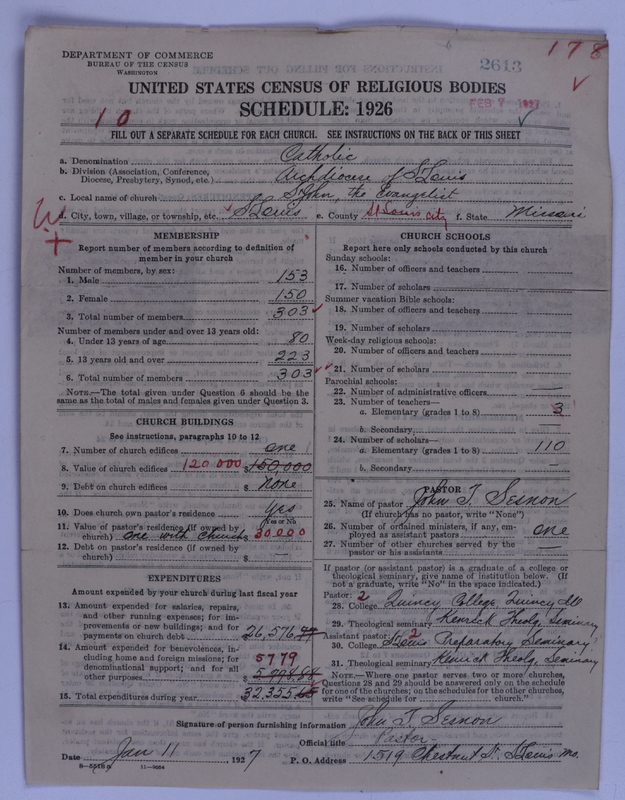 178
2613
DEPARTMENT OF COMMERCE
BUREAU OF THE CENSUS
WASHINGTON
UNITED STATES CENSUS OF RELIGIOUS BODIES
SCHEDULE: 1926
FEB 7 1927
10
FILL OUT A SEPARATE SCHEDULE FOR EACH CHURCH. SEE INSTRUCTIONS ON THE BACK OF THIS SHEET
a. Denomination Catholic
b. Division (Association, Conference, Diocese, Presbytery, Synod, etc.) Archdiocese of St Louis
c. Local name of church St John, the Evangelist
d. City, town, village, or township, etc. St Louis e. County St Louis City f. State Missouri
MEMBERSHIP
Report number of members according to definition of
member in your church
Number of members, by sex:
1. Male 153
2. Female 150
3. Total number of members 303
Number of members under and over 13 years old:
4. Under 13 years of age 80
5. 13 years old and over 223
6. Total number of members 303
NOTE.—The total given under Question 6 should be the
same as the total of males and females given under Question 3.
CHURCH BUILDINGS
See instructions, paragraphs 10 to 12
7. Number of church edifices one 1
8. Value of church edifices 120 000 $150,000
9. Debt on church edifices $ none
10. Does church own pastor's residence yes
Yes or No
11. Value of pastor's residence (if owned by
church) one with church $ 30000
12. Debt on pastor's residence (if owned by
church) $ —
EXPENDITURES
Amount expended by your church during last fiscal year
13. Amount expended for salaries, repairs,
and other running expenses; for im-
provements or new buildings; and for
payments on church debt 26,576
14. Amount expended for benevolences, in-
cluding home and foreign missions; for
denominational support; and for all
other purposes 5779
15. Total expenditures during year 32,355
CHURCH SCHOOLS
Report here only schools conducted by this church
Sunday schools:
16. Number of officers and teachers
17. Number of scholars
Summer vacation Bible schools:
18. Number of officers and teachers
19. Number of scholars
Week-day religious schools:
20. Number of officers and teachers
21. Number of scholars
Parochial schools:
22. Number of administrative officers —
23. Number of teachers—
a. Elementary (grades 1 to 8) 3
b. Secondary —
24. Number of scholars—
a. Elementary (grades 1 to 8) 110
b. Secondary —
PASTOR
25. Name of pastor John T. Sesnon
(If church has no pastor, write "None")
26. Number of ordained ministers, if any, em-
ployed as assistant pastors one
27. Number of other churches served by the
pastor or his assistants —
If pastor (or assistant pastor) is a graduate of a college or
theological seminary, give name of institution below. (If
not a graduate, write "No" in the space indicated.)
Pastor: 2
28. College Quincy College Quincy Ill
29. Theological seminary Kenrick Theolg. Seminary
Assistant pastor: 2
30. College St Louis Preparatory Seminary
31. Theological seminary Kenrick Theolg. Seminary
NOTE.—Where one pastor serves two or more churches,
Questions 28 and 29 should be answered only on the schedule
for one of the churches; on the schedules for the other churches,
write "See schedule for church."
Signature of person furnishing information John T. Sesnon
Official title Pastor
Date Jan 11, 1927 P. O. Address 1519 Chestnut St. St Louis Mo.
11—9064